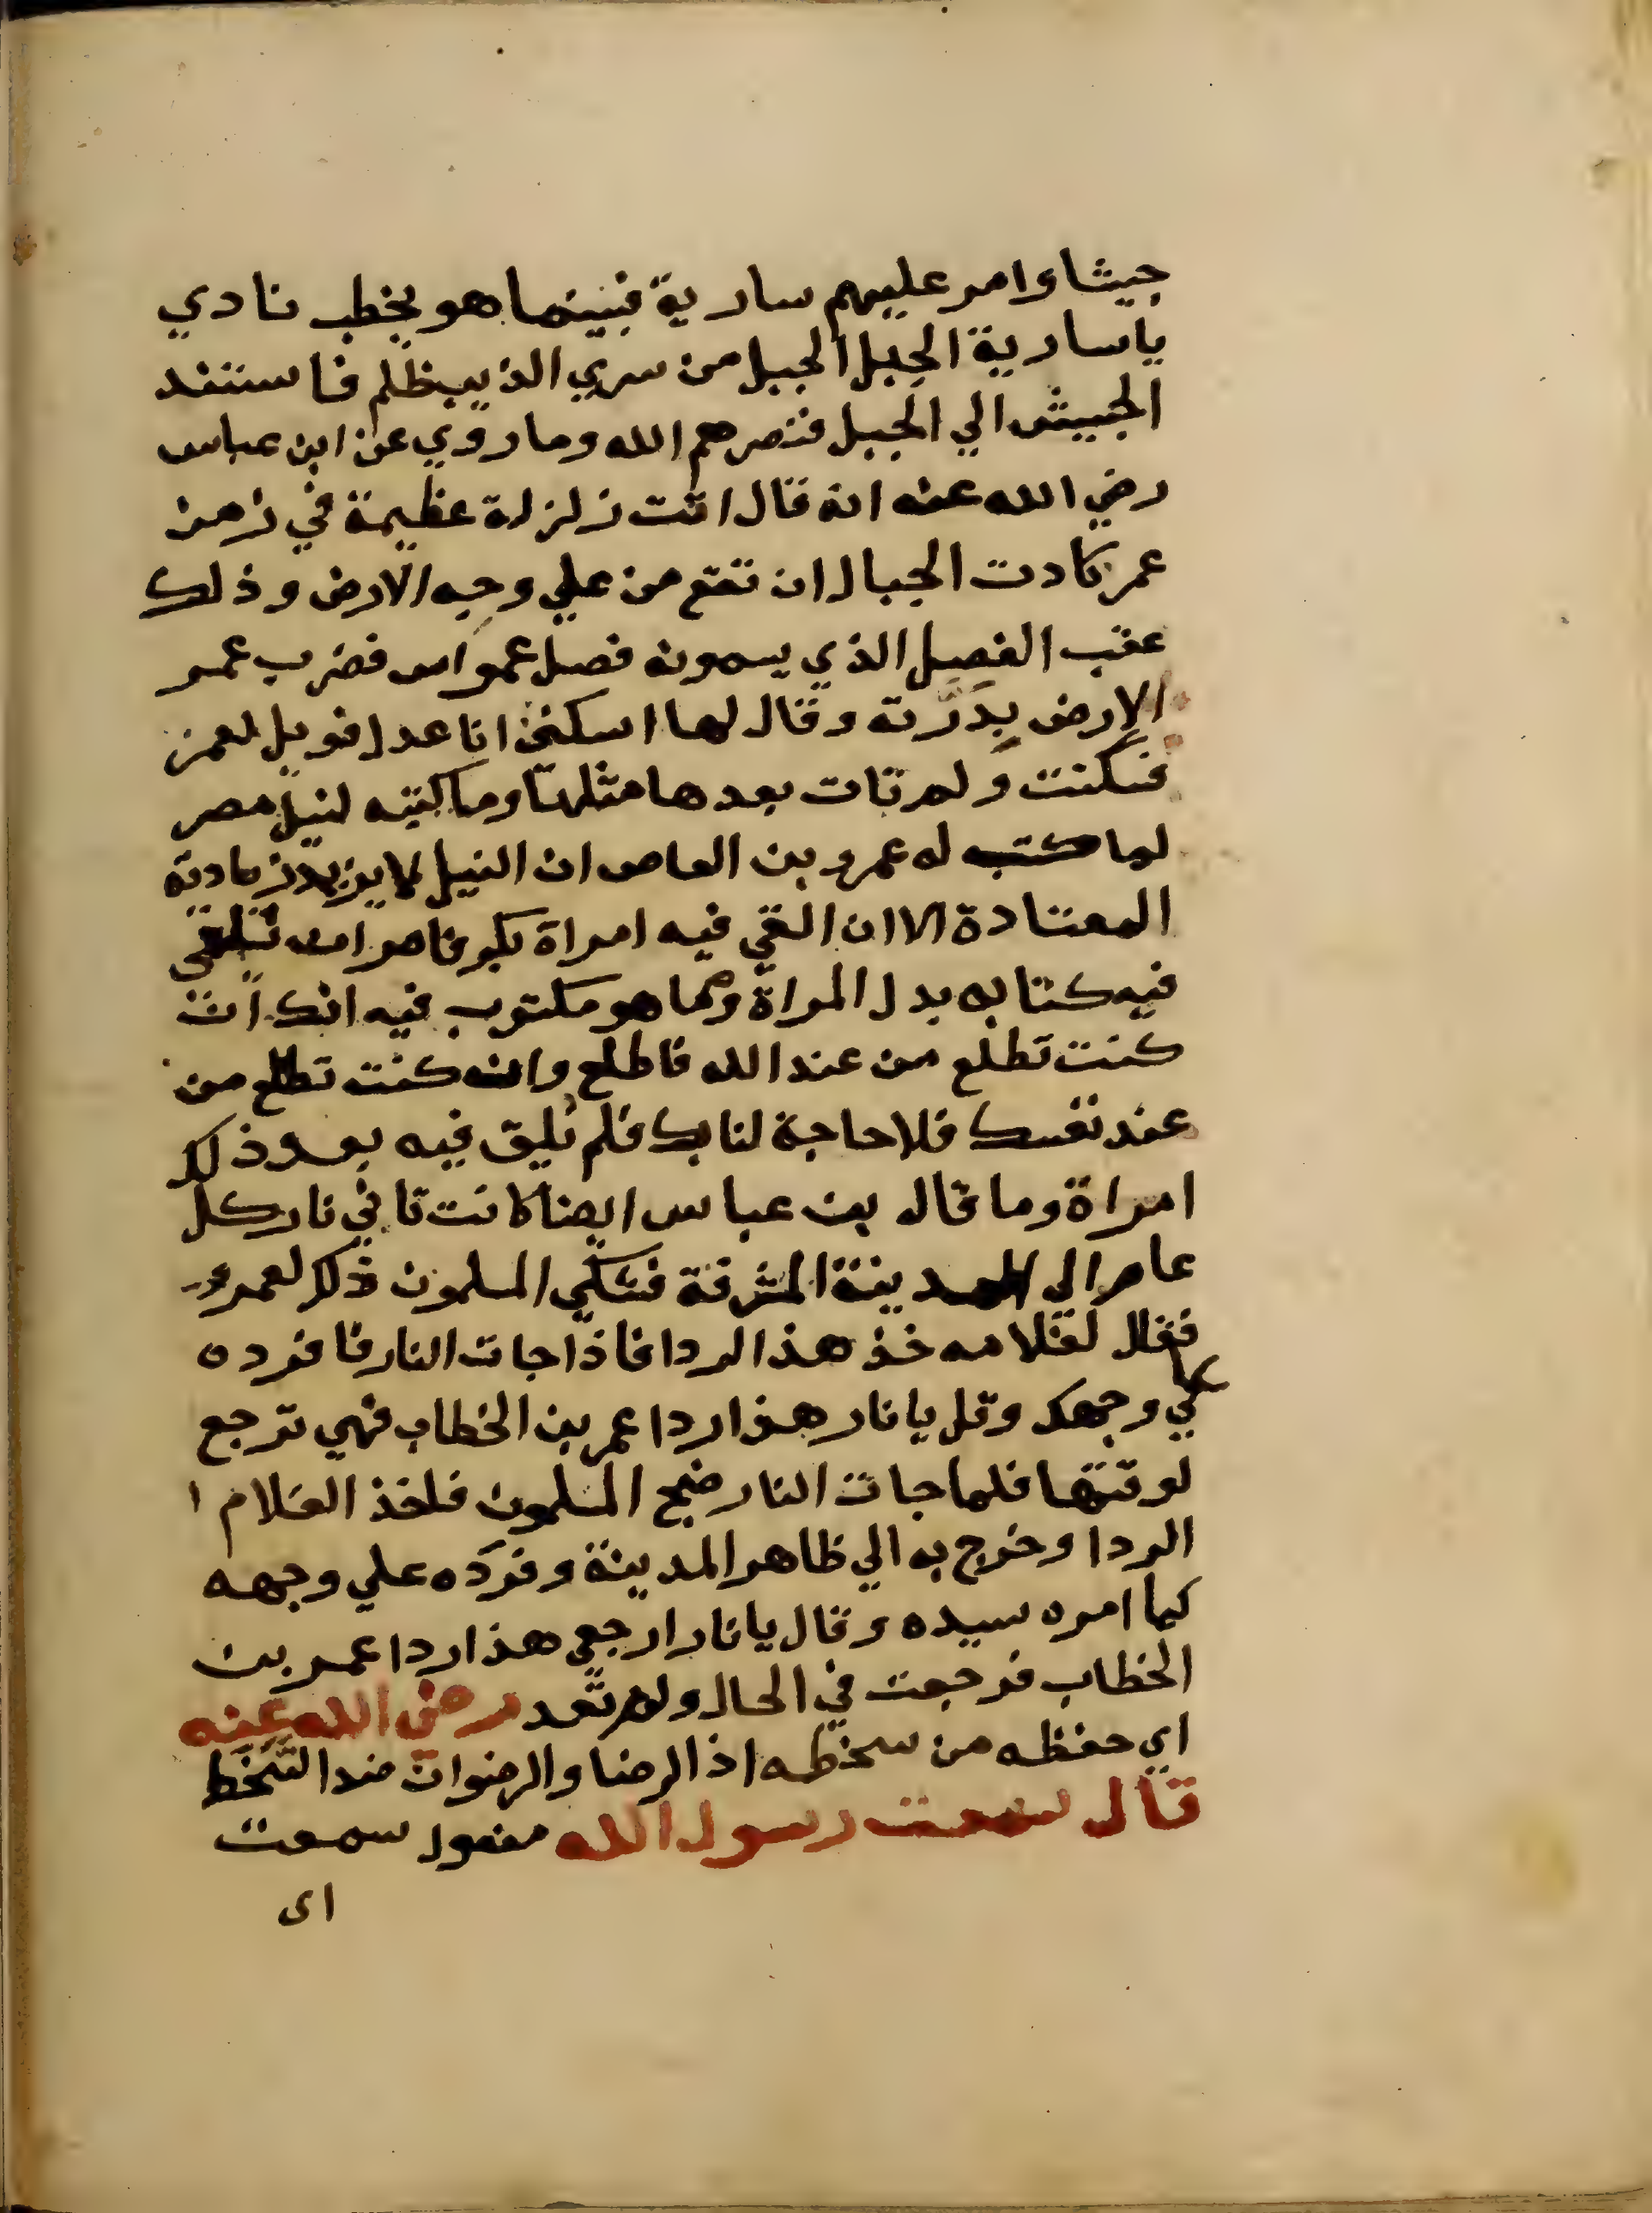 جيشا وامر عليهم سارية فبينما هو يخطب نادي
يا سارية الجبل الجبل من سري الذيب ظلم فاستند
الجيش الي الجبل فنصرهم الله وما روي عن ابن عباس
رضي الله عنه انه قال اتت زلزلة عظيمة في زمن
عمر كادت الجبال ان تقع من علي وجه الارض وذلك
عقب الفصل الذي يسمونه فصل عمواس فضرب عمر
الارض بدرته وقال لها اسكني انا عدل فويل لعمر
فسكنت ولم تات بعدها مثلها وما كتبه لنيل مصر
لما كتب له عمرو بن العاص ان النيل لا يزيد زيادته
المعتادة الا ان القي فيه امراة بكر فامر ان تلقي
فيه كتابه بدل المراة ومما هو مكتوب فيه انك ان
كنت تطلع من عند الله فاطلع وان كنت تطلع من
عند نفسك فلا حاجة لنا بك فلم يلق فيه بعد ذلك
امراة وما قال بن عباس ايضا كانت تاتي نار كل
عام الي المدينة المشرفة فشكي المسلمون ذلك لعمر
فقال لغلامه خذ هذا الردا فاذا جات النار فافرده
علي وجهك وقل يا نار هذا ردا عمر بن الخطاب فهي ترجع
لوقتها فلما جات النار ضج المسلمون فاخذ الغلام ا
الردا وخرج به الي ظاهر المدينة وفرده علي وجهه
كما امره سيده وقال يا نار ارجعي هذا ردا عمر بن
الخطاب فرجعت في الحال ولم تعد رضي الله عنه
اي حفظه من سخطه اذ الرضا والرضوان ضد السخط
قال سمعت رسول الله مفعول سمعت
اي